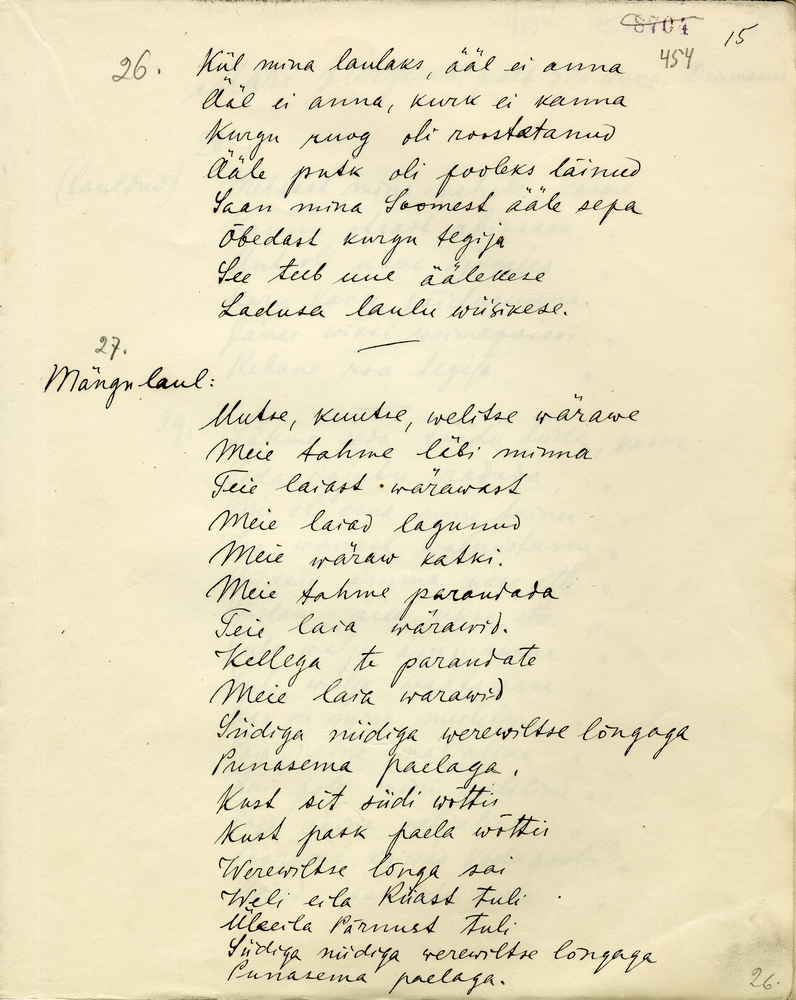 8704
15
454
26.
Kül mina laulaks, ääl ei anna
Ääl ei anna, kurk ei kanna
Kurgu ruog oli roostetanud
Ääle putk oli pooleks läinud
Saan mina Soomest ääle sepa
Õbedast kurgu tegija
See teeb uue äälekese
Ladusa laulu wiisikese.
27.
Mängulaul:
Uutse, kuutse, welitse wärawe
Meie tahme läbi minna
Teie laiast wärawast
Meie laiad lagunud
Meie wäraw katki.
Meie tahme parandada
Teie laia wärawid.
Kellega te parandate
Meie laia warawid
Siidiga niidiga werewiltse lõngaga
Punasema paelaga.
Kust sit siidi wõttis
Kust pask paela wõttis
Werewiltse lõnga sai
Weli eila Riiast tuli
Üleeila Pärnust tuli
Siidiga niidiga werewiltse lõngaga
Punasema paelaga.
26.